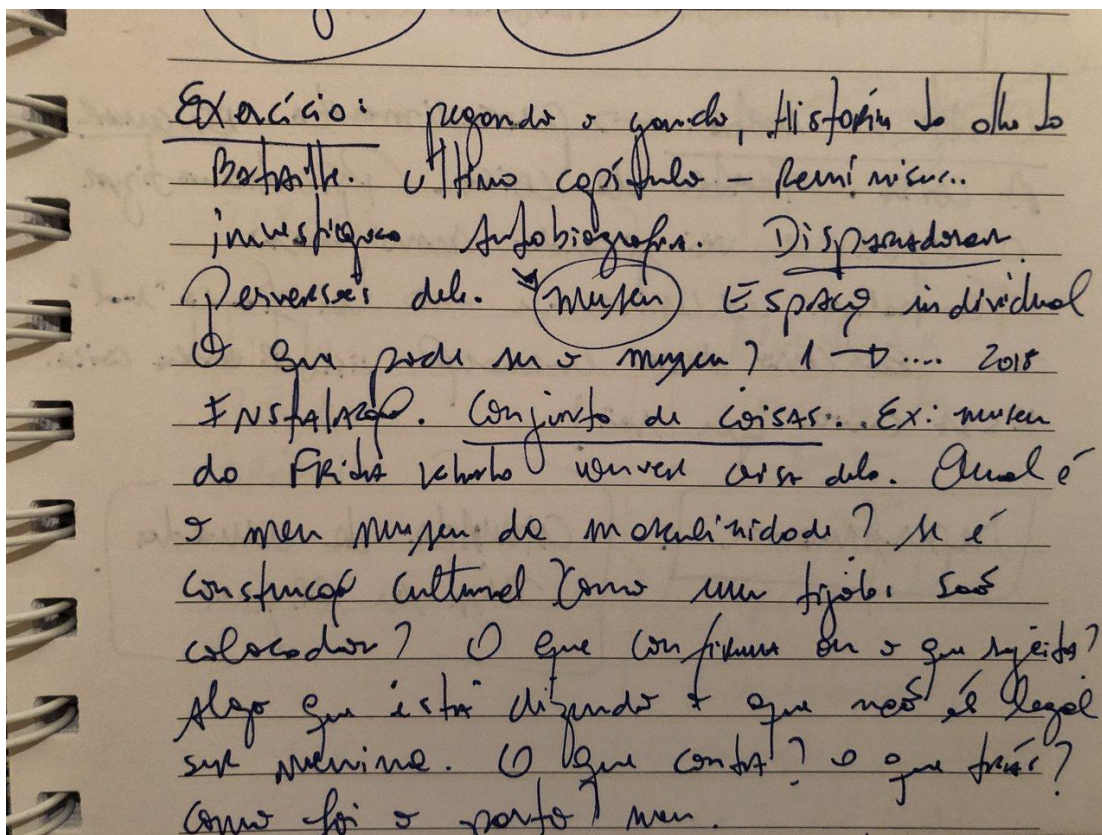 Exercício: pegando o gancho, História do olho do
Bataille. Último capítulo – Reminisc..
investigação Autobiografia. Disparadores
Perversões dele. museu Espaço individual
O que pode ser o museu? 1 → .... 2018
INstalação. Conjunto de coisas.. Ex: museu
da Frida Khalo coisa dela. Qual é
o meu museu da masculinidade? se é
construção cultural como meus tijolos são
colocados? O que confirma ou o que rejeita?
Algo que está dizendo que não é legal
ser menina. O que conta? o que trás?
Como foi o parto meu.